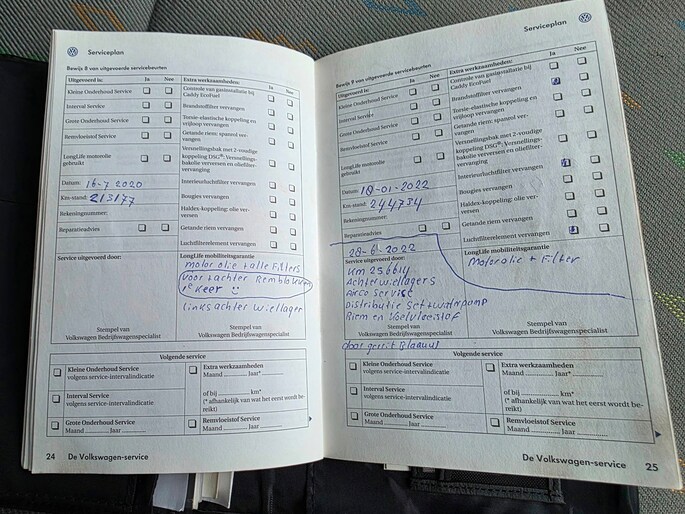 Serviceplan
Bewijs 8 van uitgevoerde servicebeurten
Uitgevoerd is: Ja Nee
Kleine Onderhoud Service
Interval Service
Grote Onderhoud Service
Remvloeistof Service
LongLife motorolie gebruikt
Datum: 16-7 2020
Km-stand: 213177
Rekeningnummer:
Reparatieadvies
Extra werkzaamheden: Ja Nee
Controle van gasinstallatie bij
Caddy EcoFuel
Brandstoffilter vervangen
Torsie-elastische koppeling en
vrijloop vervangen
Getande riem; spanrol ver-
vangen
Versnellingsbak met 2-voudige
koppeling DSG®: Versnellings-
bakolie verversen en oliefilter-
vervangen
Interieurluchtfilter vervangen
Bougies vervangen
Haldex-koppeling: olie ver-
versen
Getande riem vervangen
Luchtfilterelement vervangen
Service uitgevoerd door:
Stempel van
Volkswagen Bedrijfswagenspecialist
LongLife mobiliteitsgarantie
Motor olie + alle Filters
Voor + achter Remblokken
1e Keer
Links achter wiellager
Stempel van
Volkswagen Bedrijfswagenspecialist
Volgende service
Kleine Onderhoud Service
volgens service-intervalindicatie
Interval Service
volgens service-intervalindicatie
Grote Onderhoud Service
Maand Jaar
Extra werkzaamheden
Maand Jaar*
of bij km*
(* afhankelijk van wat het eerst wordt be-
reikt)
Remvloeistof Service
Maand Jaar
24 De Volkswagen-service
Serviceplan
Bewijs 9 van uitgevoerde servicebeurten
Uitgevoerd is: Ja Nee
Kleine Onderhoud Service
Interval Service
Grote Onderhoud Service
Remvloeistof Service
LongLife motorolie
gebruikt
Datum: 18-01-2022
Km-stand: 244734
Rekeningnummer:
Reparatieadvies
Extra werkzaamheden: Ja Nee
Controle van gasinstallatie bij
Caddy EcoFuel
Brandstoffilter vervangen
Torsie-elastische koppeling en
vrijloop vervangen
Getande riem; spanrol ver-
vangen
Versnellingsbak met 2-voudige
koppeling DSG®: Versnellings-
bakolie verversen en oliefilter-
vervangen
Interieurluchtfilter vervangen
Bougies vervangen
Haldex-koppeling: olie ver-
versen
Getande riem vervangen
Luchtfilterelement vervangen
28-6 2022
Service uitgevoerd door:
Km 256614
Achterwiellagers
Airco service
Distributie Set + waterpomp
Riem en Koelvloeistof
Stempel van
Volkswagen Bedrijfswagenspecialist
door gerrit Blaauw
LongLife mobiliteitsgarantie
Motorolie + Filter
Stempel van
Volkswagen Bedrijfswagenspecialist
Volgende service
Kleine Onderhoud Service
volgens service-intervalindicatie
Interval Service
volgens service-intervalindicatie
Grote Onderhoud Service
Maand Jaar
Extra werkzaamheden
Maand Jaar*
of bij km*
(* afhankelijk van wat het eerst wordt be-
reikt)
Remvloeistof Service
Maand Jaar
De Volkswagen-service 25